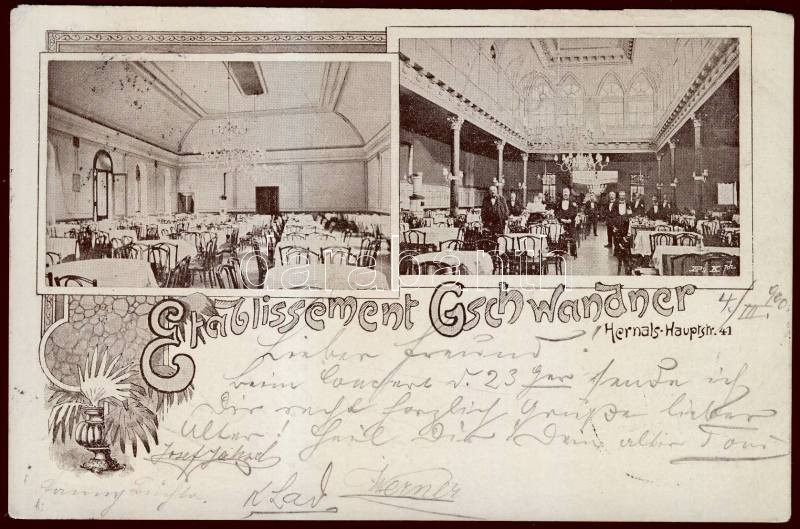 Etablissement Gschwandner
Hernals-Hauptstr. 41
4./III. 900.
Lieber Freund!
beim Concert d. 23 ger sende ich
Dir recht herzlich Grüße lieber
Alter! Dein alter Toni
Josef
K Lad Werner
darabanth